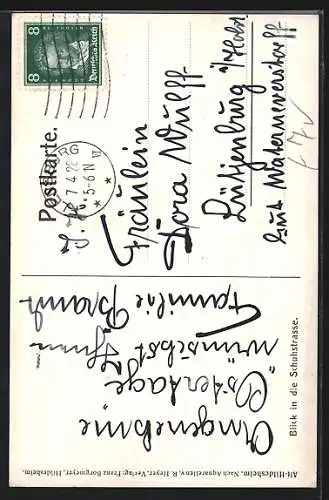 Alt-Hildesheim. Nach Aquarellen v. R. Heyer. Verlag: Franz Borgmeyer, Hildesheim.
Blick in die Schuhstrasse.
Angenehme
Ostertage
wünscht Ihnen
Familie Brandt
Postkarte.
8 Deutsches Reich 8
7 4 28
5-6 N
S. H.
Fräulein
Dora Wulff
Lütjenburg i/Holst
Gut Waterneverstorff